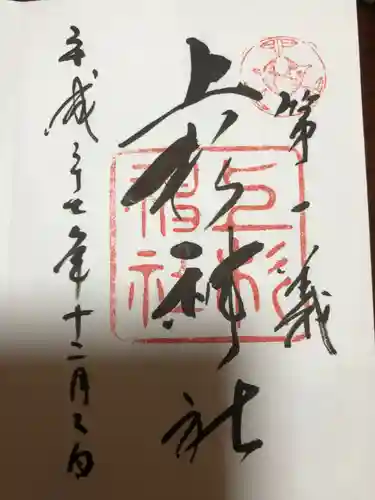 第一義
上杉神社
平成二十七年十二月二日
上杉神社